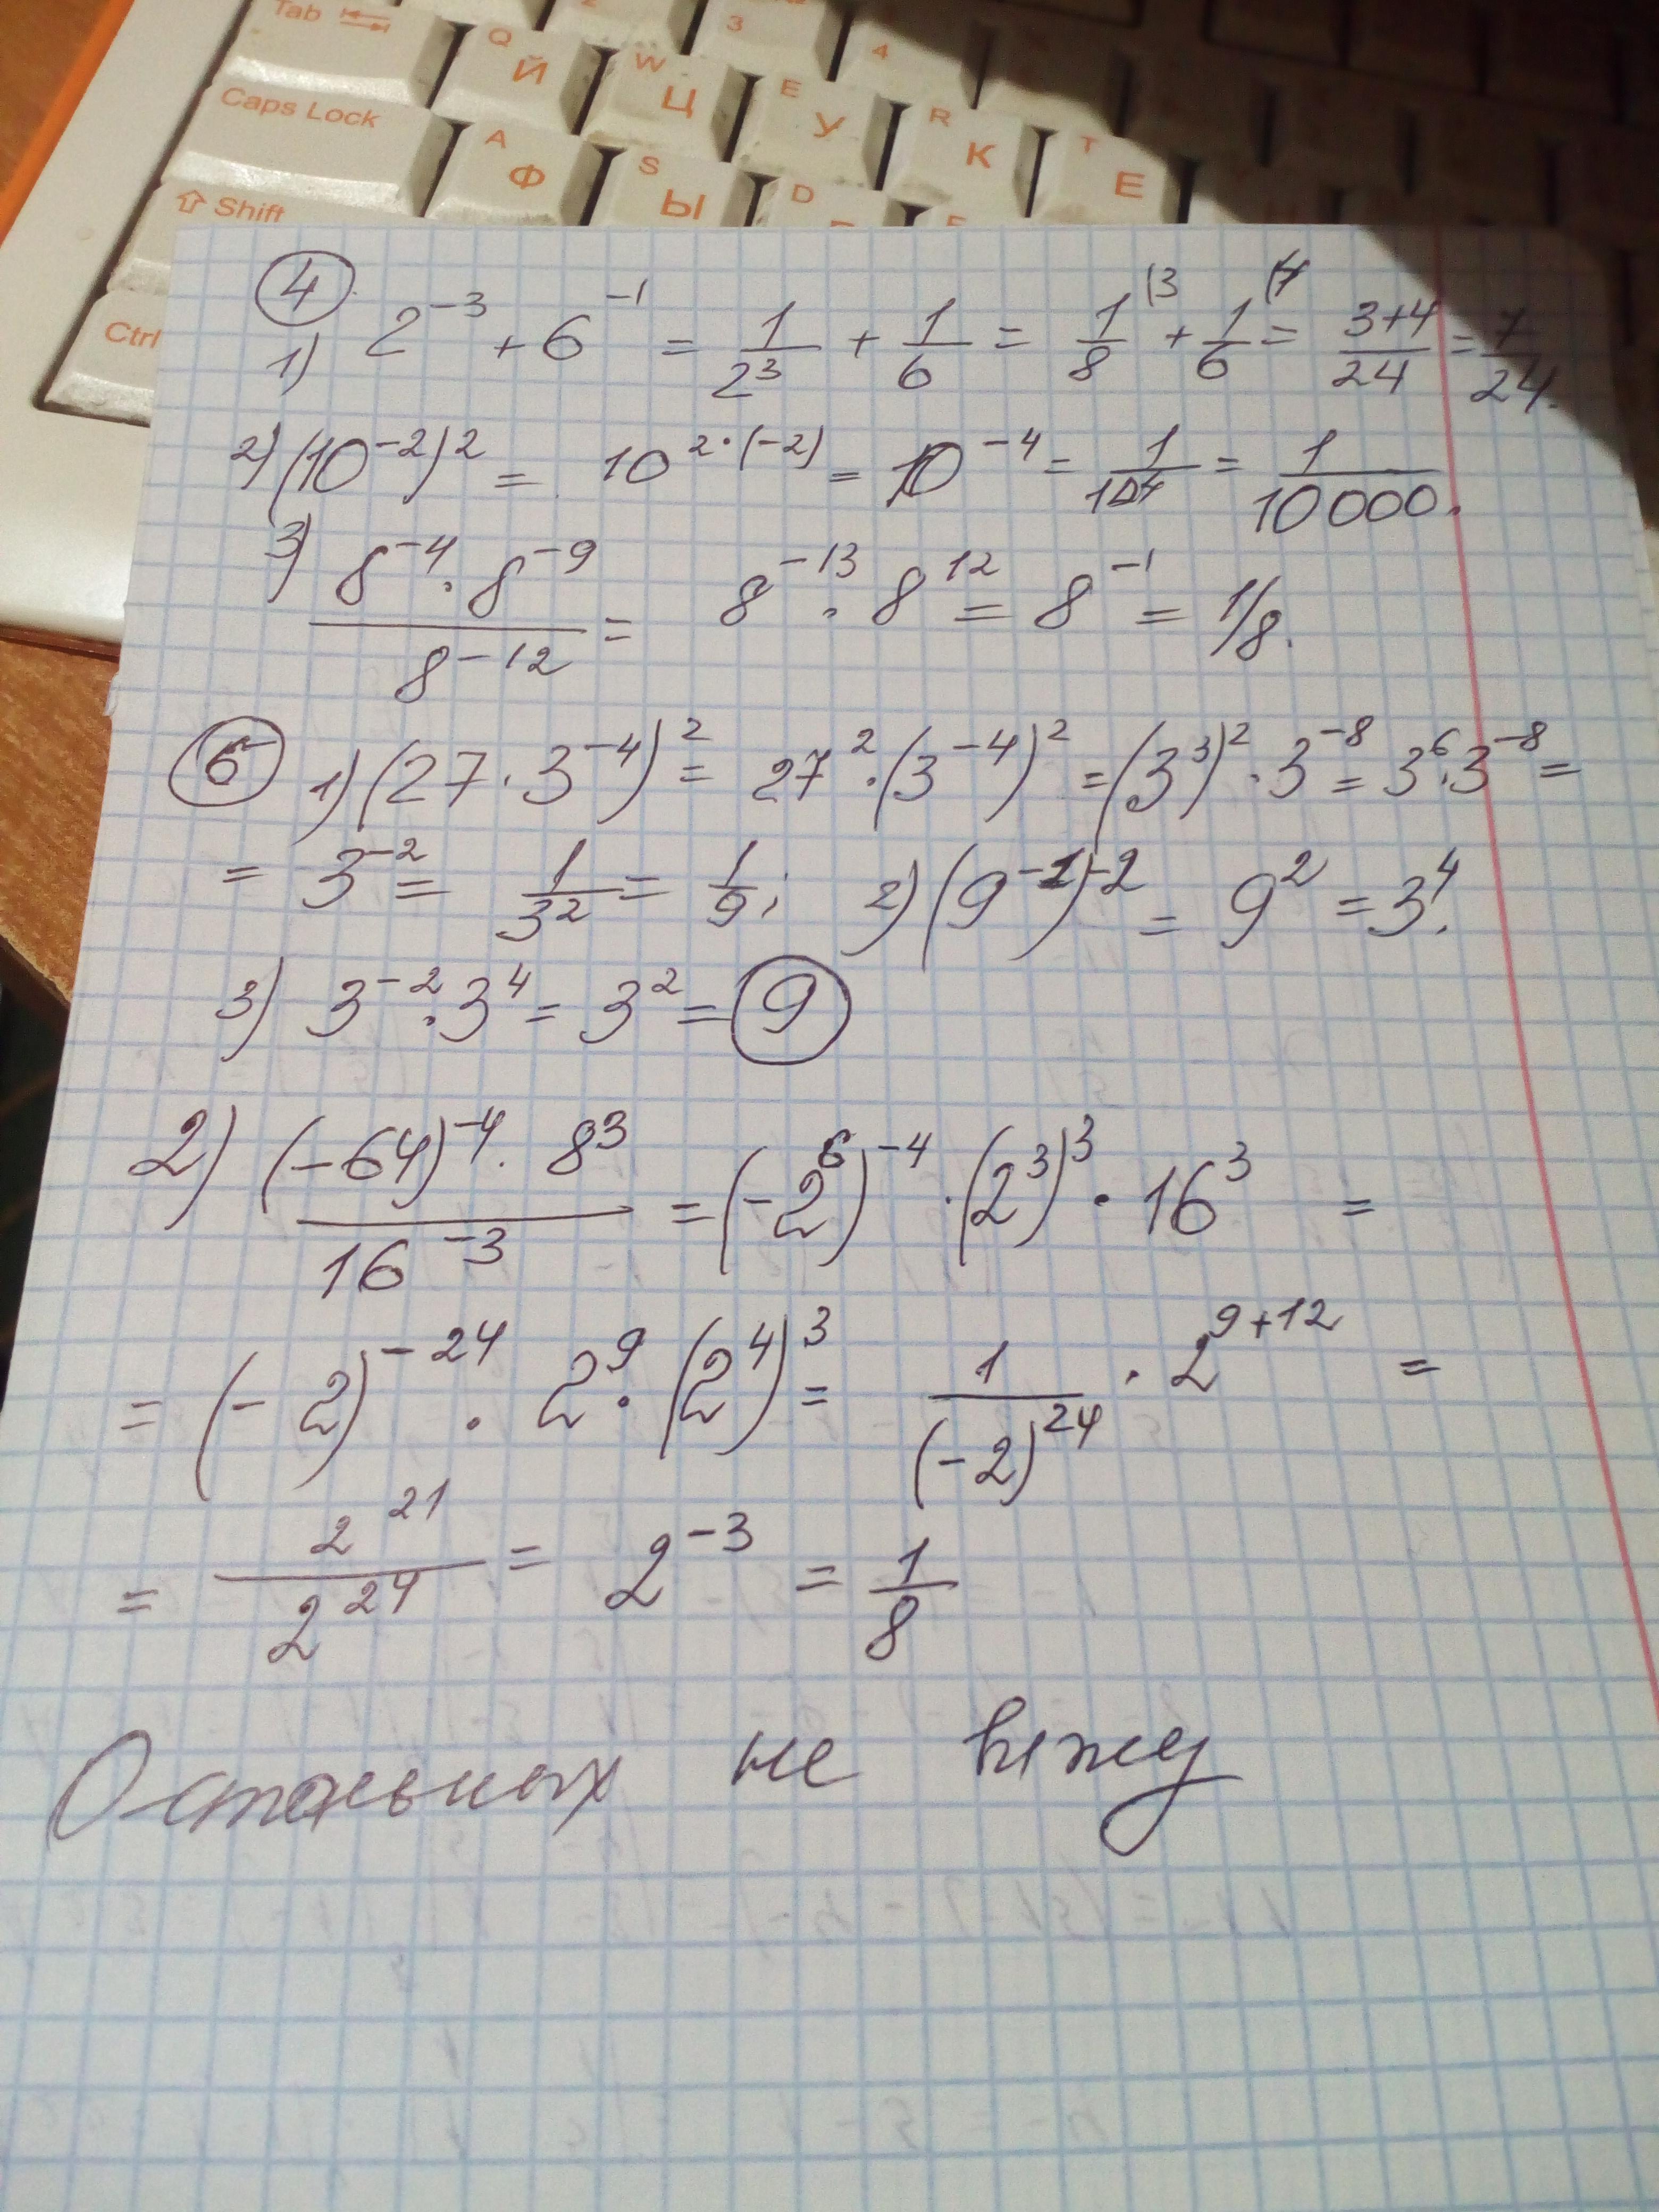 Tab 2 3 4
Q Й W Ц E У R К T Е
Caps Lock A Ф S Ы D
Shift
Ctrl
4
1) 2⁻³ + 6⁻¹ = 1/2³ + 1/6 = 1/8 (3 + 1/6 (4 = (3+4)/24 = 7/24.
2) (10⁻²)² = 10^(2·(-2)) = 10⁻⁴ = 1/10⁴ = 1/10000.
3) (8⁻⁴ · 8⁻⁹)/8⁻¹² = 8⁻¹³ · 8¹² = 8⁻¹ = 1/8.
6 1) (27 · 3⁻⁴)² = 27² · (3⁻⁴)² = (3³)² · 3⁻⁸ = 3⁶ · 3⁻⁸ =
= 3⁻² = 1/3² = 1/9; 2) (9⁻¹)⁻² = 9² = 3⁴.
3) 3⁻² · 3⁴ = 3² = 9
2) ((-64)⁻⁴ · 8³)/16⁻³ = (-2⁶)⁻⁴ · (2³)³ · 16³ =
= (-2)⁻²⁴ · 2⁹ · (2⁴)³ = 1/(-2)²⁴ · 2⁹⁺¹² =
= 2²¹/2²⁴ = 2⁻³ = 1/8
Остальных не вижу